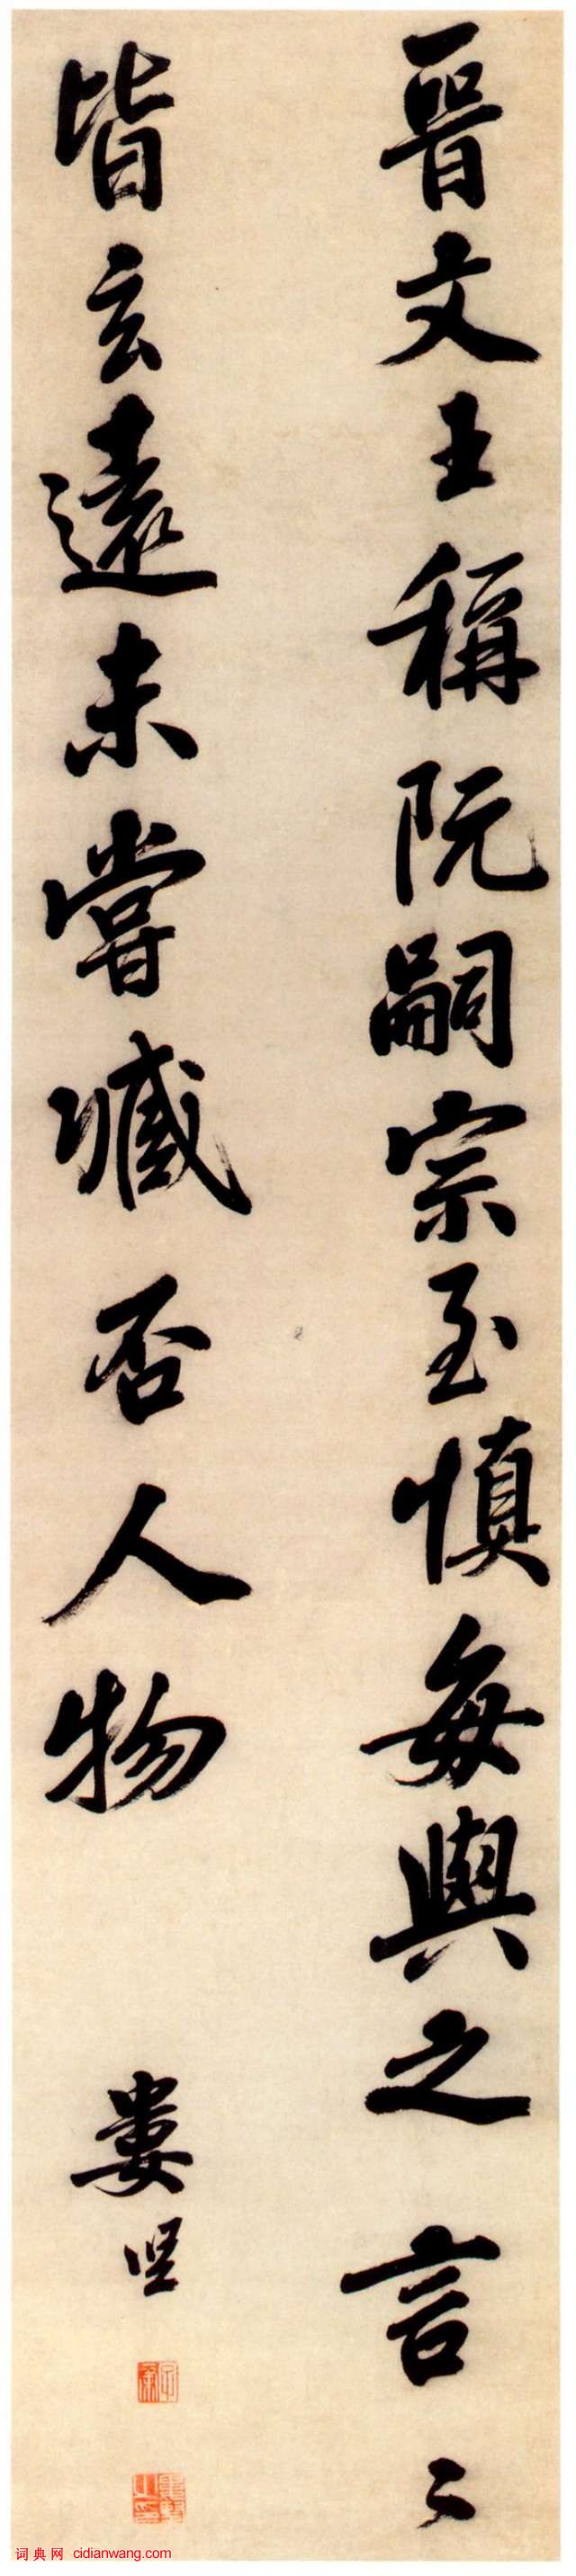 晉文王稱阮嗣宗至慎每與之言〻
皆玄遠未嘗臧否人物
婁堅
词典网 cidianwang.com